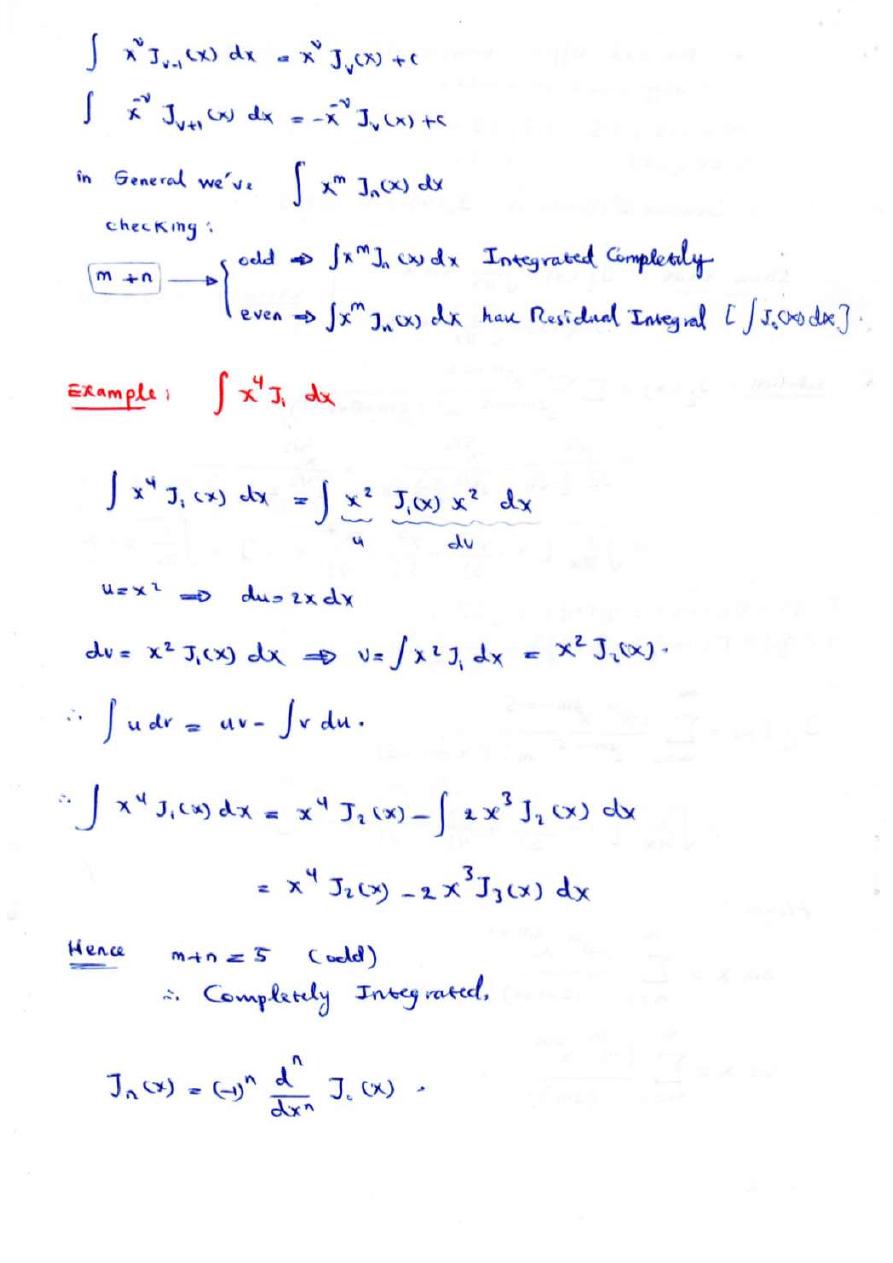 ∫ x^ν J_{ν-1}(x) dx = x^ν J_ν(x) + c
∫ x^{-ν} J_{ν+1}(x) dx = -x^{-ν} J_ν(x) + c
in General we've ∫ x^m J_n(x) dx
checking :
m + n → { odd ⇒ ∫ x^m J_n(x) dx Integrated Completely
even ⇒ ∫ x^m J_n(x) dx have Residual Integral [∫ J_0(x) dx].
Example: ∫ x^4 J_1 dx
∫ x^4 J_1(x) dx = ∫ x^2 J_1(x) x^2 dx
u dv
u = x^2 ⇒ du = 2x dx
dv = x^2 J_1(x) dx ⇒ v = ∫ x^2 J_1 dx = x^2 J_2(x).
∴ ∫ u dv = uv - ∫ v du.
∴ ∫ x^4 J_1(x) dx = x^4 J_2(x) - ∫ 2x^3 J_2(x) dx
= x^4 J_2(x) - 2x^3 J_3(x) dx
Hence m+n = 5 (odd)
∴ Completely Integrated.
J_n(x) = (-1)^n d^n/dx^n J_0(x) .